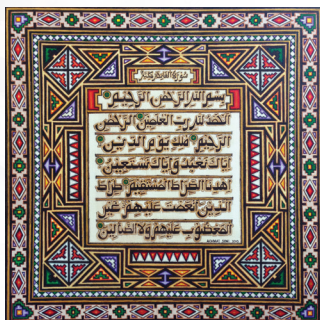 سورة الفاتحة
بسم الله الرحمن الرحيم
الحمد لله رب العلمين الرحمن
الرحيم ملك يوم الدين
إياك نعبد وإياك نستعين
اهدنا الصراط المستقيم صراط
الذين أنعمت عليهم غير
المغضوب عليهم ولا الضالين